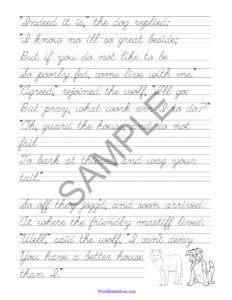 "Indeed it is," the dog replied;
"I know no ill so great beside;
But if you do not like to be
So poorly fed, come live with me."
"Agreed," rejoined the wolf, "I'll go;
But pray, what work am I to do?"
"Oh, guard the house, and do not
fail
To bark at thieves, and wag your
tail."
So off they jogg'd, and soon arrived
At where the friendly mastiff lived.
"Well," said the wolf, "I can't deny
You have a better house
than I."
SAMPLE